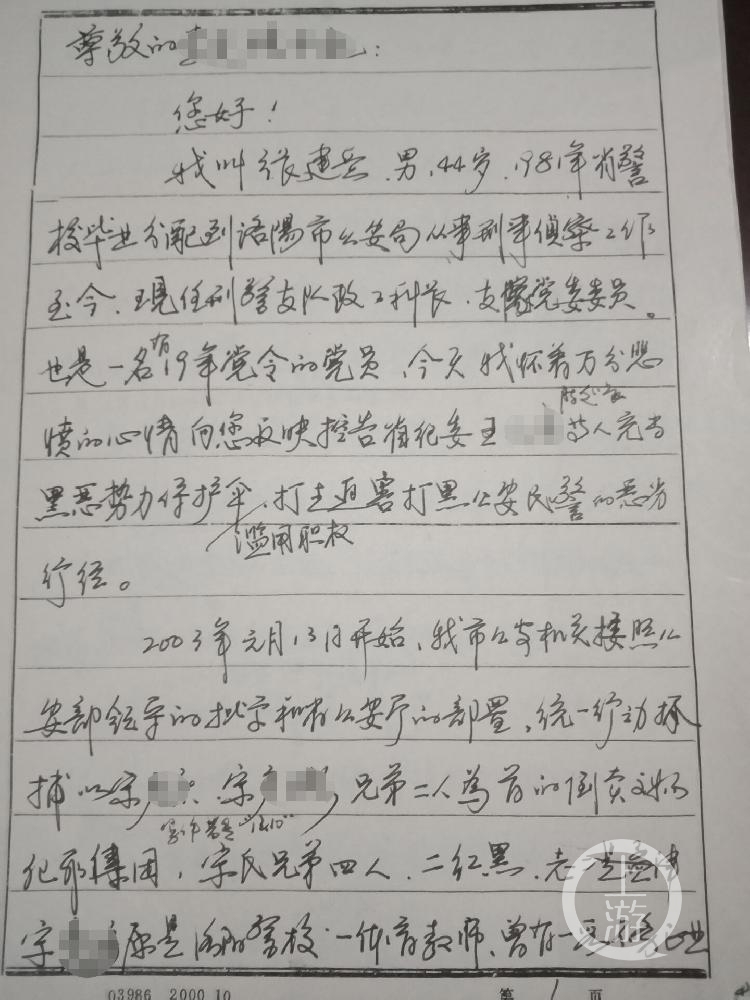 尊敬的
您好！
我叫张建兵、男、44岁、1981年省警
校毕业分配到洛阳市公安局从事刑事侦察工作
至今、现任刑警支队政工科长、支队党委委员。
也是一名有19年党令的党员、今天我怀着万分悲
愤的心情向您反映控告省纪委王 等人充当
黑恶势力保护伞、滥用职权打击迫害打黑公安民警的恶劣
行径。
2003年元月13日开始、我市公安机关按照公
安部领导的批字和省公安厅的部置、统一行动抓
捕以宋 宋 兄弟二人为首的倒卖文物
犯罪集团，宋氏兄弟四人、二红黑、老
宋 原是洛阳警校一体育教师、曾有一
03986 2000.10 第 1 页
上游